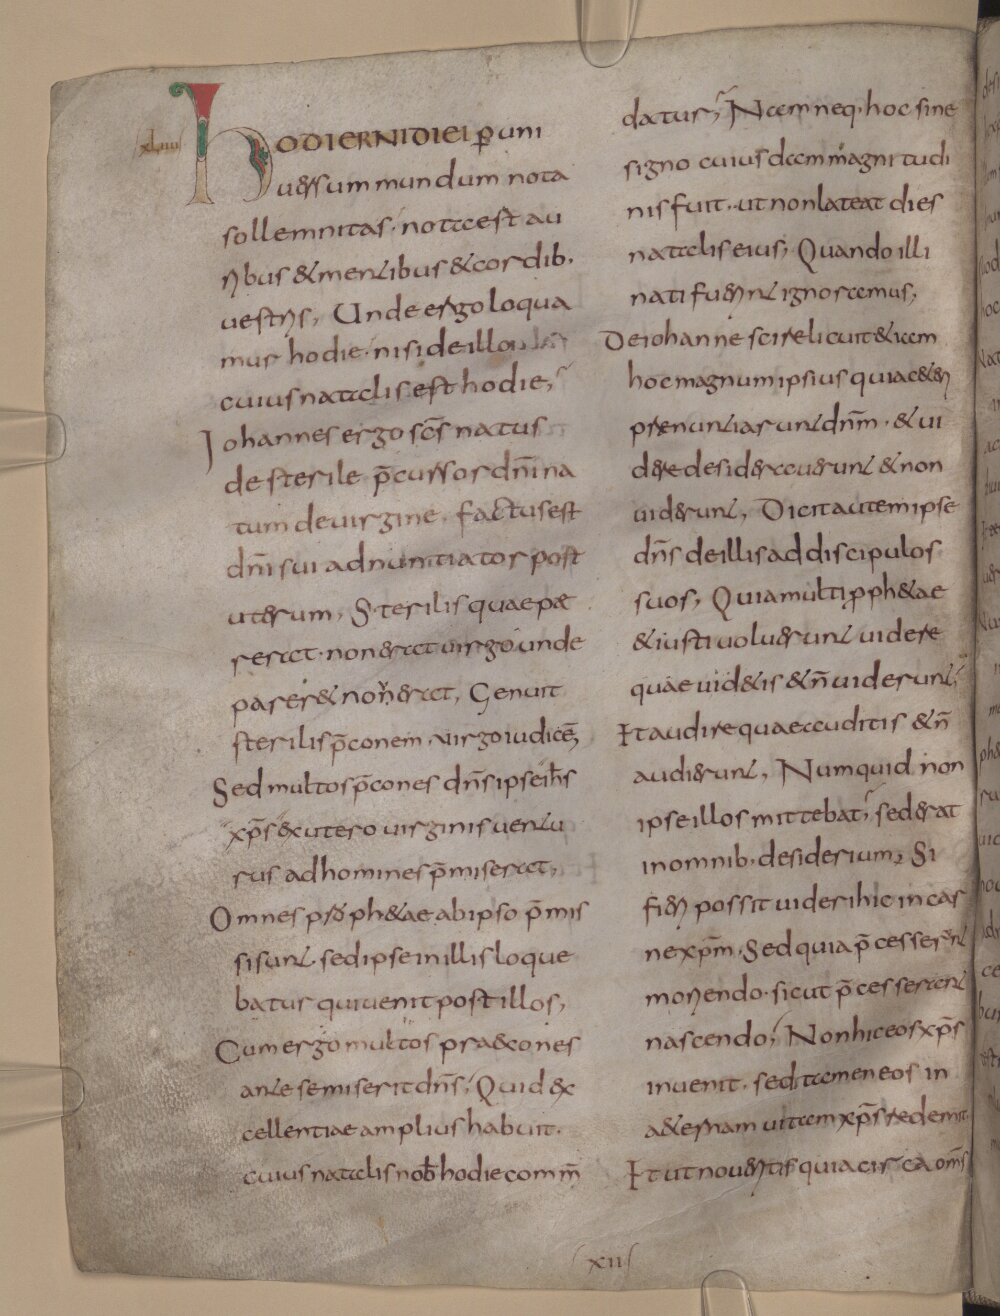 xliiii
hODIERNI DIEI ꝑ uni
uersum mundum nota
sollemnitas · nota est au
ribus & mentibus & cordib ·
uestris, Unde ergo loqua
mur hodie · nisi de illo
cuius natalis est hodie,
Iohannes ergo sc̄s natus
de sterile p̄cursor dn̄i na
tum de uirgine · factus est
dn̄i sui adnuntiator post
uterum, Sterilis quae pæ
reret · non erat uirgo unde
parer& non erat, Genuit
sterilis p̄conem · uirgo iudicē,
Sed multos p̄cones dn̄s ipse ih̄s
xp̄s & utero uirginis uentu
rus ad homines p̄miserat,
Omnes proph&ae ab ipso p̄mis
si sunt · sed ipse in illis loque
batur qui uenit post illos,
Cum ergo multos praecones
ante se miserit dn̄s, Quid ex
cellentiae amplius habuit ·
cuius natalis nob̄ hodie com̄m
datur, Nam neq · hoc sine
signo cuiusdam magnitudi
nis fuit · ut non lateat dies
natalis eius, Quando illi
nati fuerint ignoramus,
De iohanne scire licuit & iam
hoc magnum ipsius quia c&eri
prenuntiarunt dn̄m · & ui
dere desiderauerunt & non
uiderunt, Dicit autem ipse
dn̄s de illis ad discipulos
suos, Quia multi ꝓph&ae
& iusti uoluerunt uidere
quae uid&is & n̄ uiderunt,
Et audire quae auditis & n̄
audierunt, Numquid non
ipse illos mittebat, sed erat
in omnib · desiderium, Si
fieri possit uideri hic in car
ne xp̄m · Sed quia p̄cesserunt
moriendo · sicut p̄cesserant
nascendo, Non hic eos xp̄s
inuenit · sed tamen eos in
a&ernam uitam xp̄s redemit
Et ut noueritis quia circa om̄s
xii